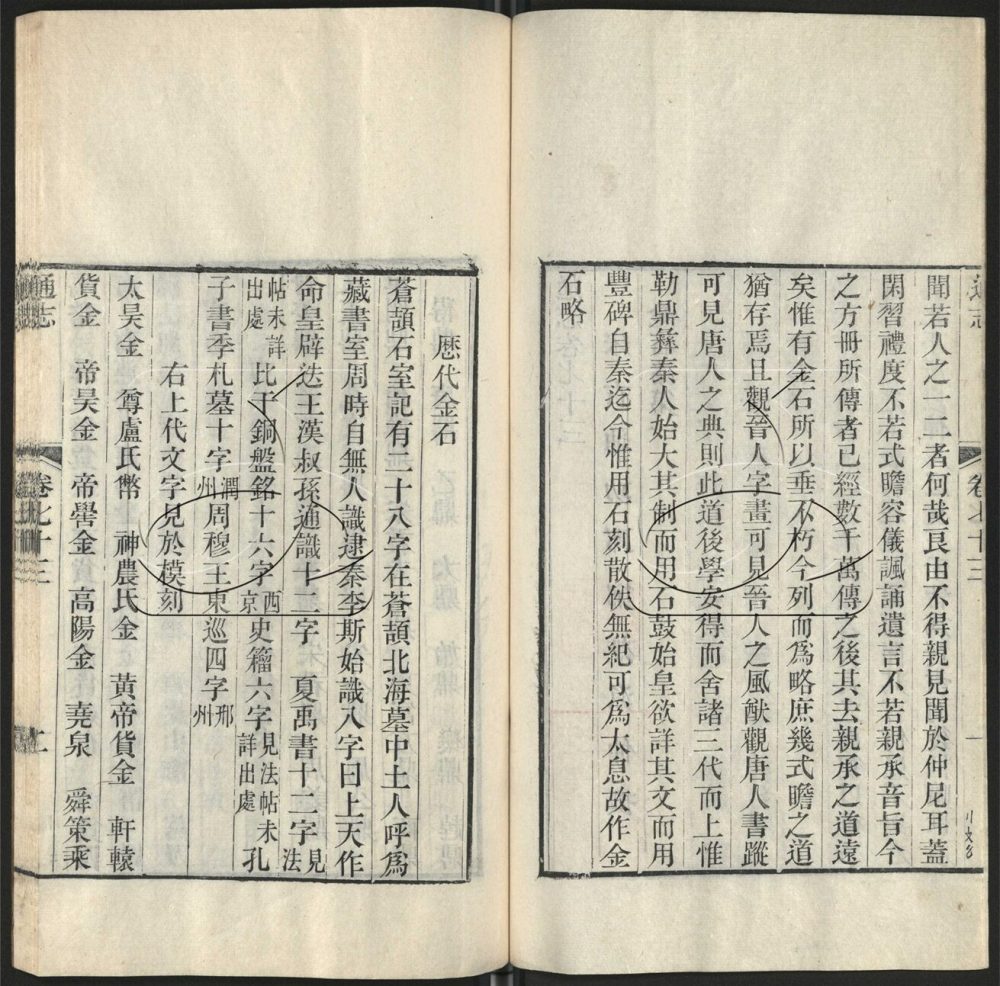 通志
卷七十三
一
聞若人之一二者何哉良由不得親見聞於仲尼耳蓋
閑習禮度不若式瞻容儀諷誦遺言不若親承音旨今
之方冊所傳者已經數千萬傳之後其去親承之道遠
矣惟有金石所以垂不朽今列而爲略庶幾式瞻之道
猶存焉且觀晉人字畫可見晉人之風猷觀唐人書蹤
可見唐人之典則此道後學安得而舍諸三代而上惟
勒鼎彝秦人始大其制而用石鼓始皇欲詳其文而用
豐碑自秦迄今惟用石刻散佚無紀可爲太息故作金
石略
歷代金石
蒼頡石室記有二十八字在蒼頡北海墓中土人呼爲
藏書室周時自無人識逮秦李斯始識八字曰上天作
命皇辟迭王漢叔孫通識十二字 夏禹書十二字見法
帖未詳出處 比干銅盤銘十六字西京 史籀六字見法帖未詳出處 孔
子書季札墓十字潤州 周穆王東巡四字邢州
右上代文字見於模刻
太昊金 尊盧氏幣 神農氏金 黃帝貨金 軒轅
貨金 帝昊金 帝嚳金 高陽金 堯泉 舜策乘
通志
卷七十三
二